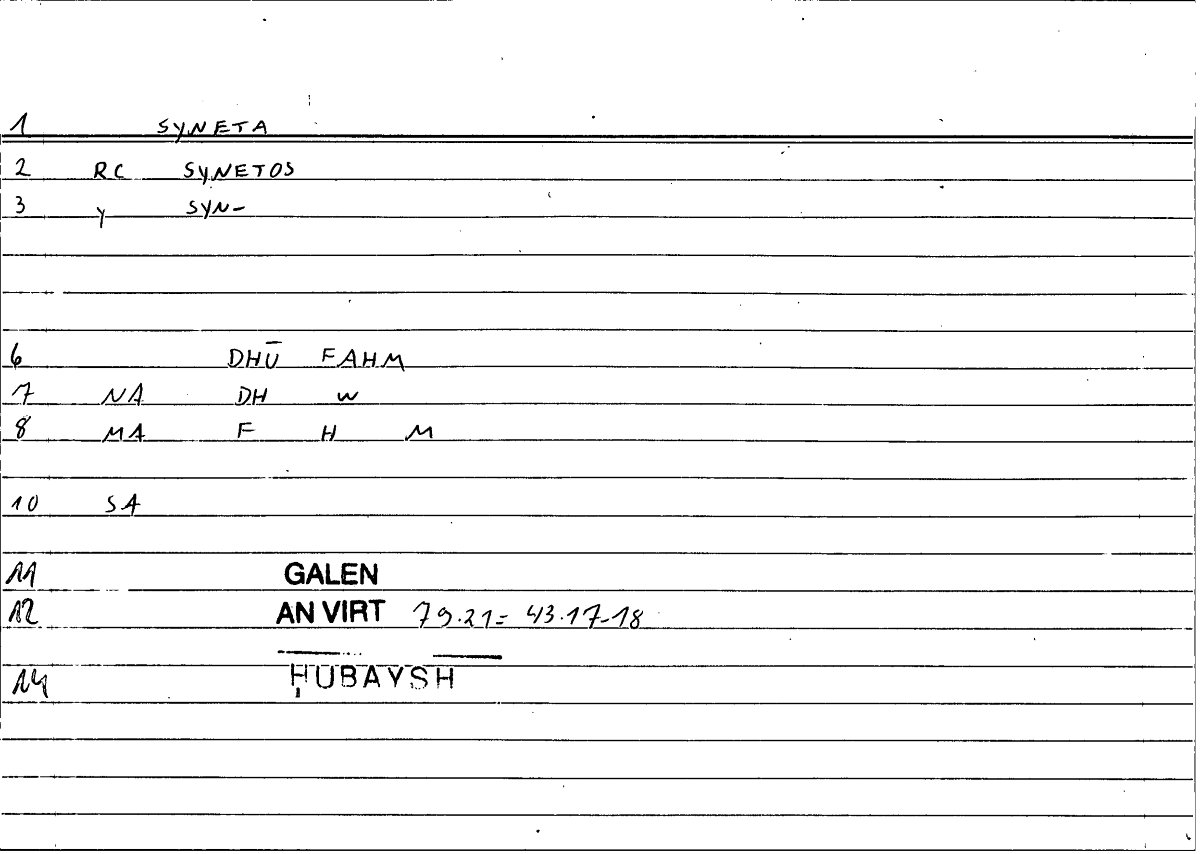 1 SYNETA
2 RC SYNETOS
3 γ SYN-
6 DHŪ FAHM
7 NA DH W
8 MA F H M
10 SA
11 GALEN
12 AN VIRT 79.21= 43.17-18
14 ḤUBAYSH